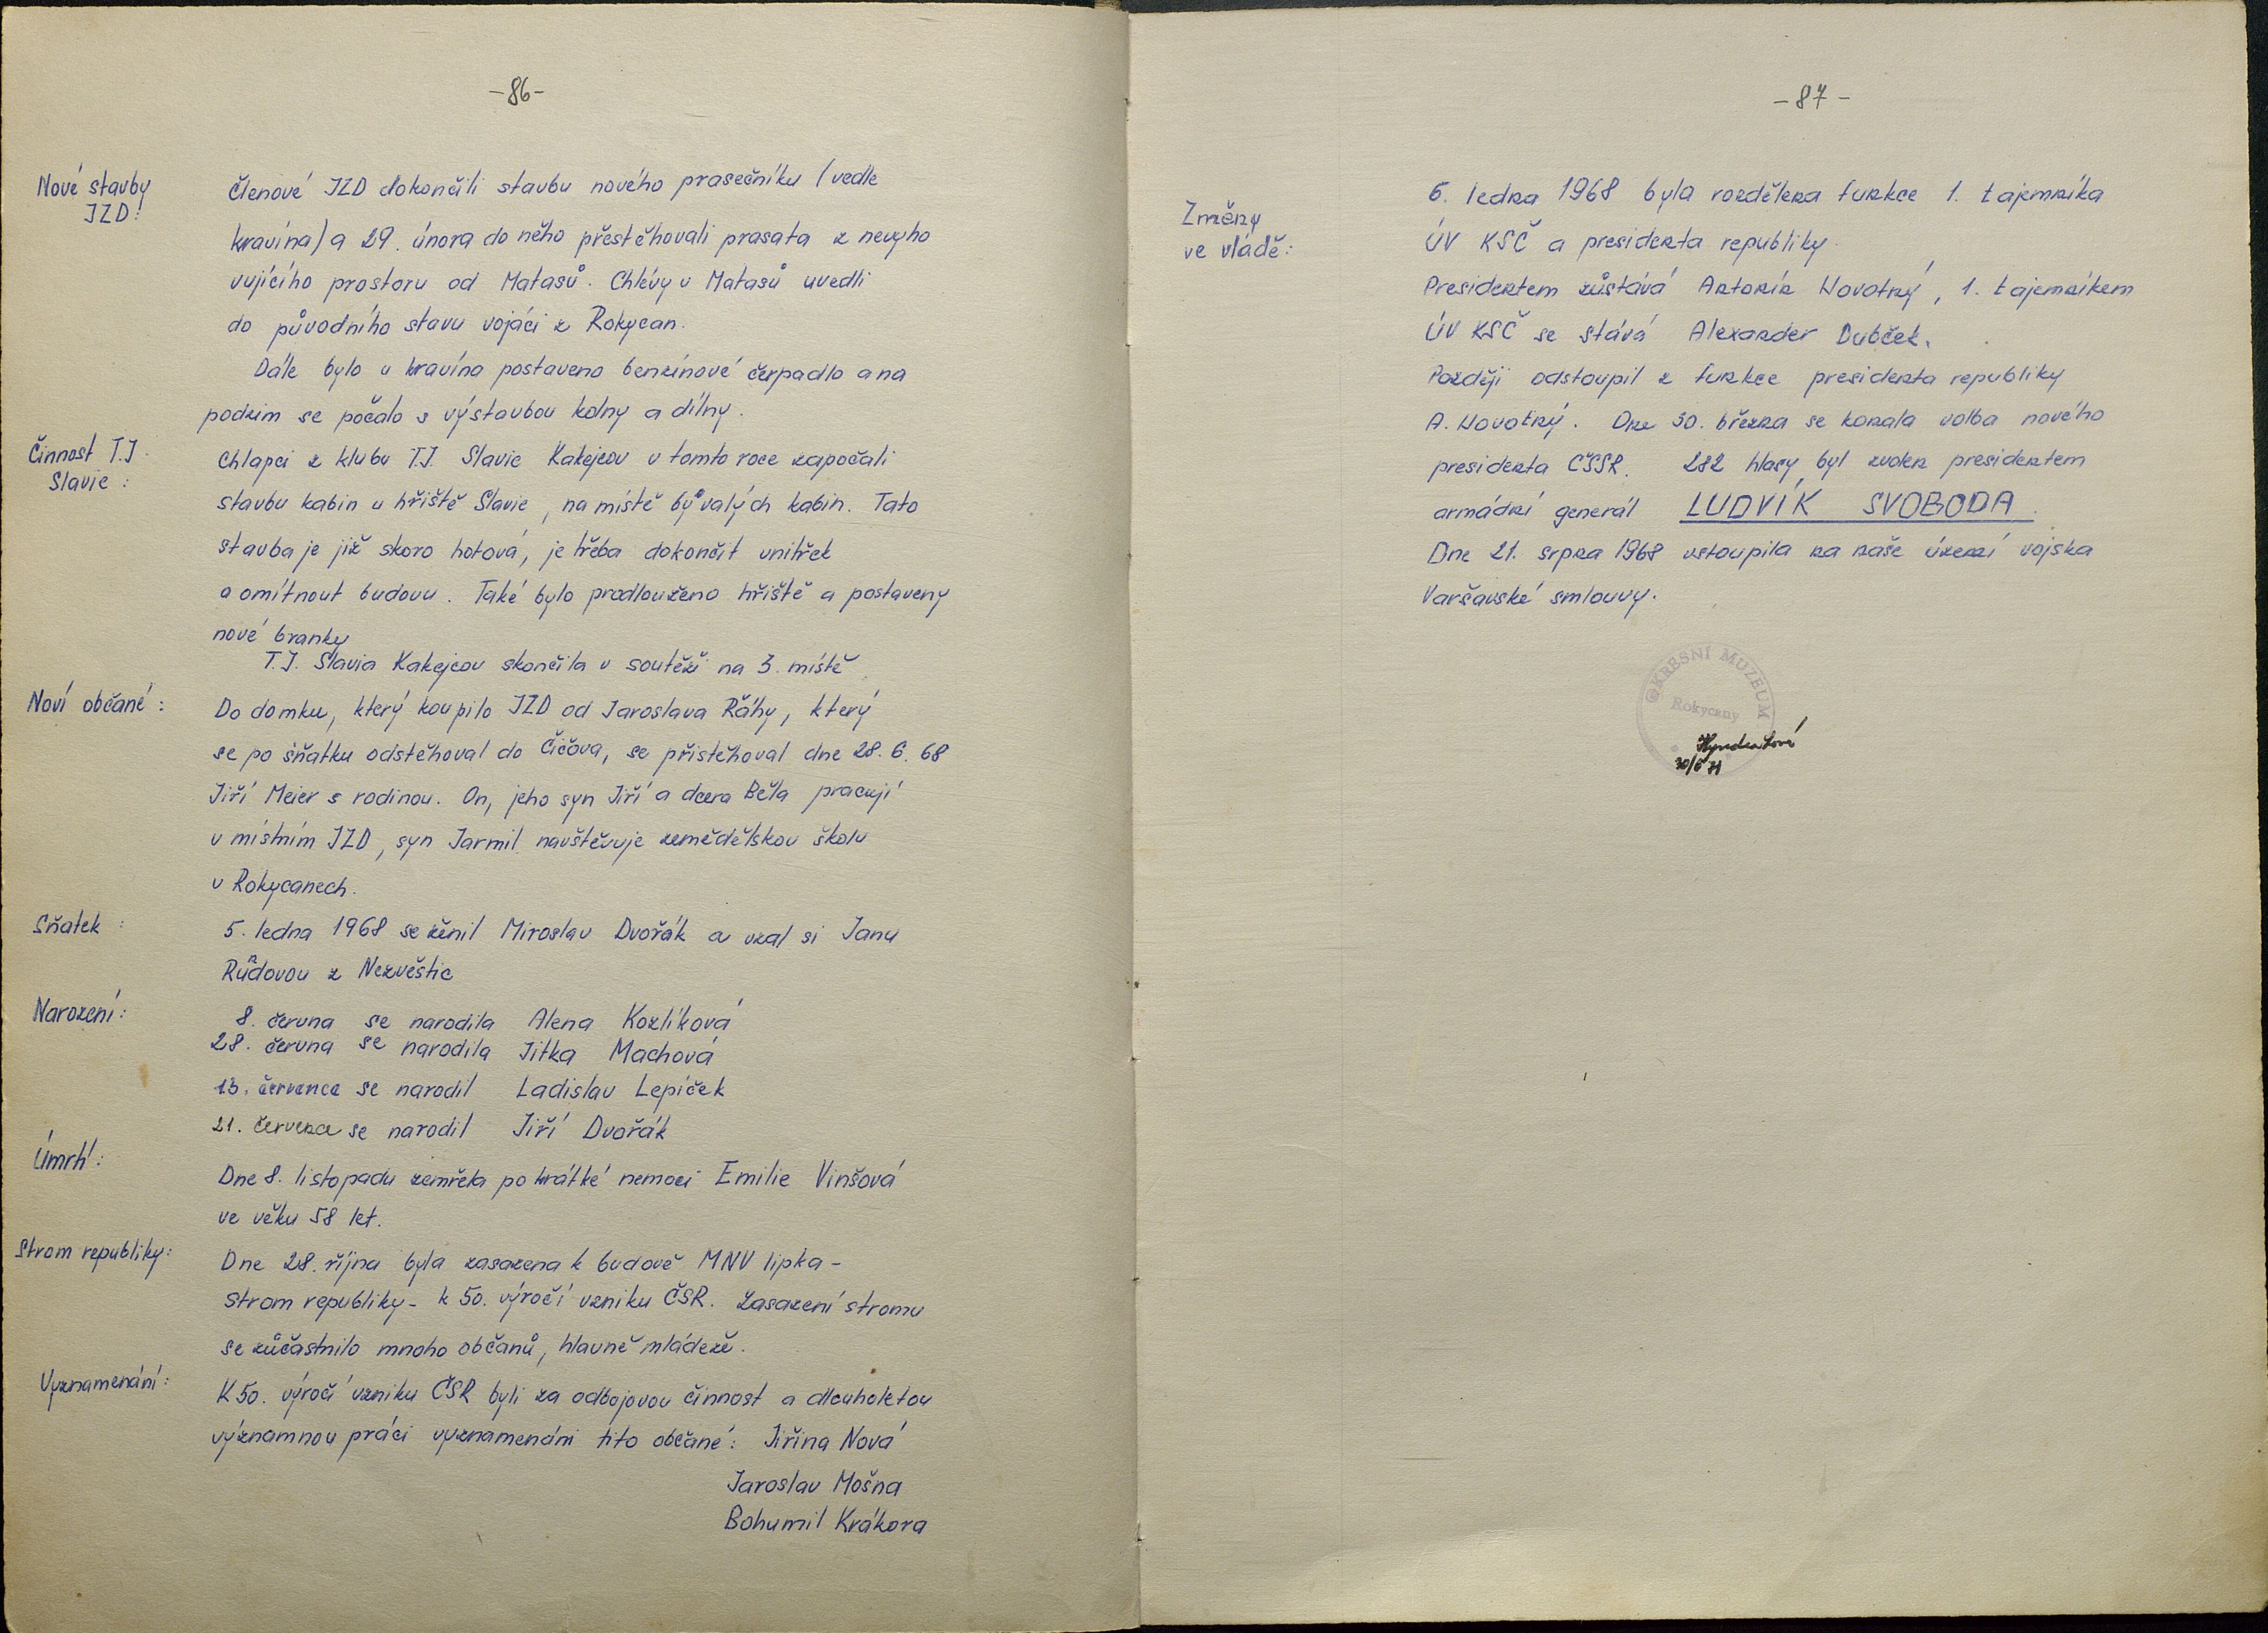 -86-
Nové stavby
JZD:
Členové JZD dokončili stavbu nového prasečníku (vedle
kravína) a 29. února do něho přestěhovali prasata z nevyho
vujícího prostoru od Matasů. Chlévy u Matasů uvedli
do původního stavu vojáci z Rokycan.
Dále bylo u kravína postaveno benzínové čerpadlo a na
podzim se počalo s výstavbou kolny a dílny.
Činnost T.J.
Slavie:
Chlapci z klubu T.J. Slavie Kakejcov v tomto roce započali
stavbu kabin u hřiště Slavie, na místě bývalých kabin. Tato
stavba je již skoro hotová, je třeba dokončit vnitřek
a omítnout budovu. Také bylo prodlouženo hřiště a postaveny
nové branky
T.J. Slavia Kakejcov skončila v soutěži na 3. místě.
Noví občané:
Do domku, který koupilo JZD od Jaroslava Řáhy, který
se po sňatku odstěhoval do Čičova, se přistěhoval dne 28. 6. 68
Jiří Meier s rodinou. On, jeho syn Jiří a dcera Běla pracují
v místním JZD, syn Jarmil navštěvuje zemědělskou školu
v Rokycanech.
Sňatek:
5. ledna 1968 se ženil Miroslav Dvořák a vzal si Janu
z Nezvěstic
Narození:
8. června se narodila Alena Kozlíková
28. června se narodila Jitka Machová
13. července se narodil Ladislav Lepíček
21. července se narodil Jiří Dvořák
Úmrtí:
Dne 8. listopadu zemřela po krátké nemoci Emilie Vinšová
ve věku 58 let.
Strom republiky:
Dne 28. října byla zasazena k budově MNV lipka -
strom republiky - k 50. výročí vzniku ČSR. Zasazení stromu
se zůčastnilo mnoho občanů, hlavně mládeže.
Vyznamenání:
K 50. výročí vzniku ČSR byli za odbojovou činnost a dlouholetou
významnou práci vyznamenáni tito občané: Jiřina Nová
Jaroslav Mošna
Bohumil Krákora
-87-
Změny
ve vládě:
6. ledna 1968 byla rozdělena funkce 1. tajemníka
ÚV KSČ a presidenta republiky.
Presidentem zůstává Antonín Novotný, 1. tajemníkem
ÚV KSČ se stává Alexander Dubček.
Později odstoupil z funkce presidenta republiky
A. Novotný. Dne 30. března se konala volba nového
presidenta ČSSR. 282 hlasy byl zvolen presidentem
armádní generál LUDVÍK SVOBODA.
Dne 21. srpna 1968 vstoupila na naše území vojska
Varšavské smlouvy.
OKRESNÍ MUZEUM
Rokycany
30/6 71